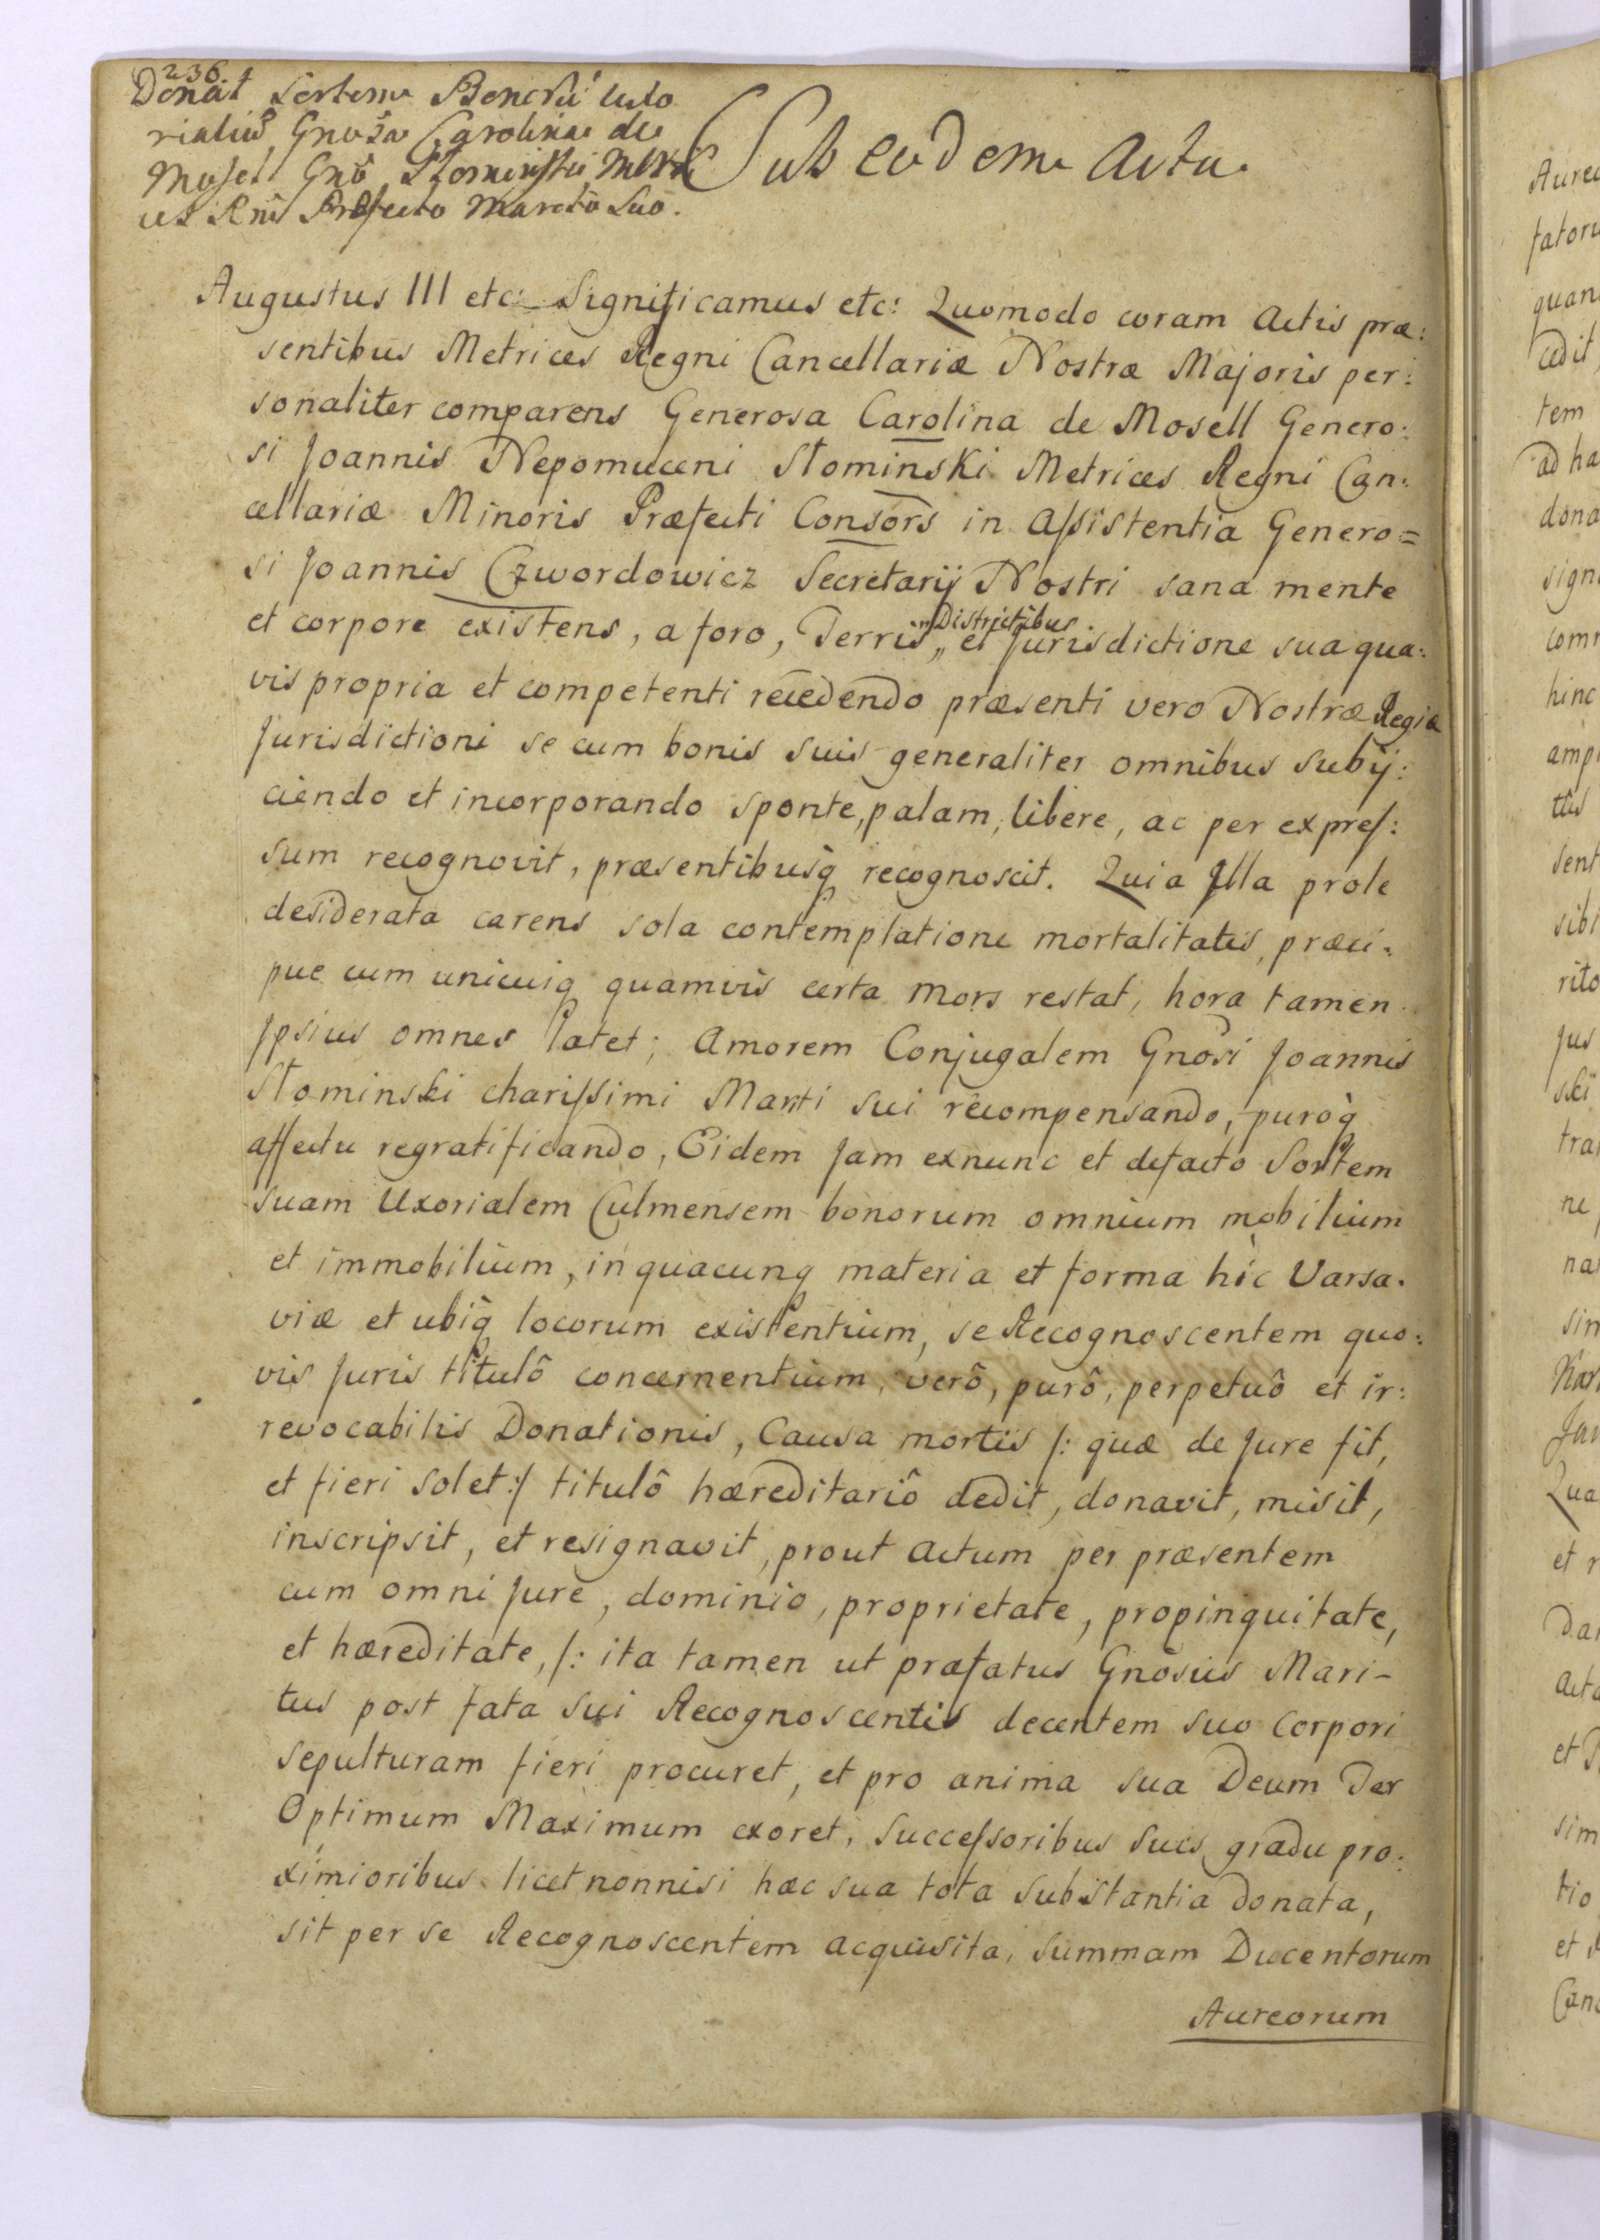 236.
Donat Sortem Bonorũ Uxo
rialiũ Gnosa Carolina de
Mosell Gno Słominski Metr
ces Rni Præfecto Marito Suo.
Sub eodem Actu.
Augustus III etc: Significamus etc: Quomodo coram Actis præ:
sentibus Metrices Regni Cancellariæ Nostræ Majoris per:
sonaliter comparens Generosa Carolina de Mosell Genero:
si Joannis Nepomuceni Słominski Metrices Regni Can:
cellariæ Minoris Præfecti Consors in Assistentia Genero=
si Joannis Czwordowicz Secretarij Nostri sana mente
et corpore existens, a foro, Terris „Districtibus„ et Jurisdictione sua qua:
vis propria et competenti recedendo præsenti vero Nostræ Regiæ
Jurisdictioni se cum bonis suis generaliter omnibus subij:
ciendo et incorporando sponte, palam, libere, ac per expres:
sum recognovit, præsentibusq̀ recognoscit. Quia Illa prole
desiderata carens sola contemplatione mortalitatis, præci:
pue cum unicuiq quamvis certa Mors restat, hora tamen
Ipsius omnes latet; Amorem Conjugalem Gnosi Joannis
Słominski charissimi Mariti sui recompensando, puroq̀
affectu regratificando, Eidem jam exnunc et defacto Sortem
suam Uxorialem Culmensem bonorum omnium mobilium
et immobilium, in quacunq materia et forma hic Varsa:
viæ et ubiq̀ locorum existentium, se Recognoscentem quo:
vis Juris titulô concernentium, verô, purô, perpetuô et ir:
revocabilis Donationis, Causa mortis /: quæ de Jure fit,
et fieri solet :/ titulô hæreditariô dedit, donavit, misit,
inscripsit, et resignavit, prout Actum per præsentem
cum omni Jure, dominio, proprietate, propinquitate,
et hæreditate, /: ita tamen ut præfatus Gnosus Mari-
tus post fata sui Recognoscentis decentem suo Corpori
sepulturam fieri procuret, et pro anima sua Deum Ter
Optimum Maximum exoret, Successoribus suis gradu pro:
ximioribus licet nonnisi hæc sua tota substantia donata,
sit per se Recognoscentem acquisita, summam Ducentorum
Aureorum